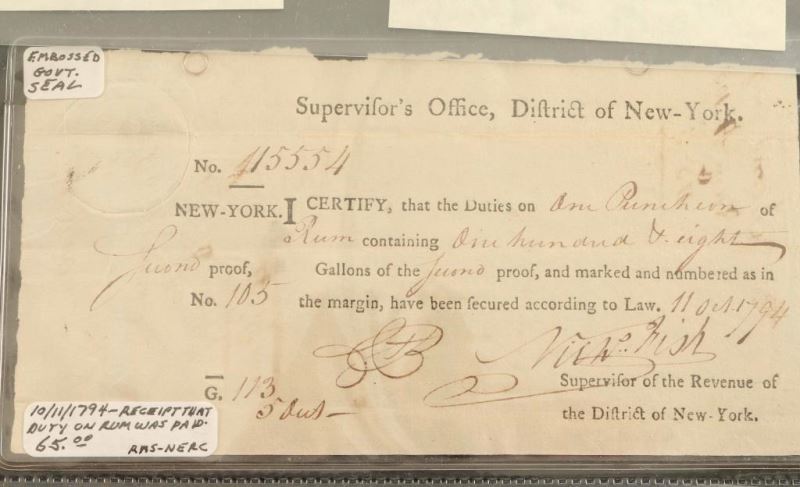 EMBOSSED
GOVT.
SEAL
Superviſor's Office, Diſtrict of New-York.
No. 115554
NEW-YORK. I CERTIFY, that the Duties on One Puncheon of
Rum containing One hundred & eight
Second proof, Gallons of the ſecond proof, and marked and numbered as in
No. 105 the margin, have been ſecured according to Law. 11 Oct. 1794
Nichs. Fish
G. 113 Superviſor of the Revenue of
5 Out the Diſtrict of New-York.
10/11/1794 - RECEIPT THAT
DUTY ON RUM WAS PAID.
65.00 RMS-NERC